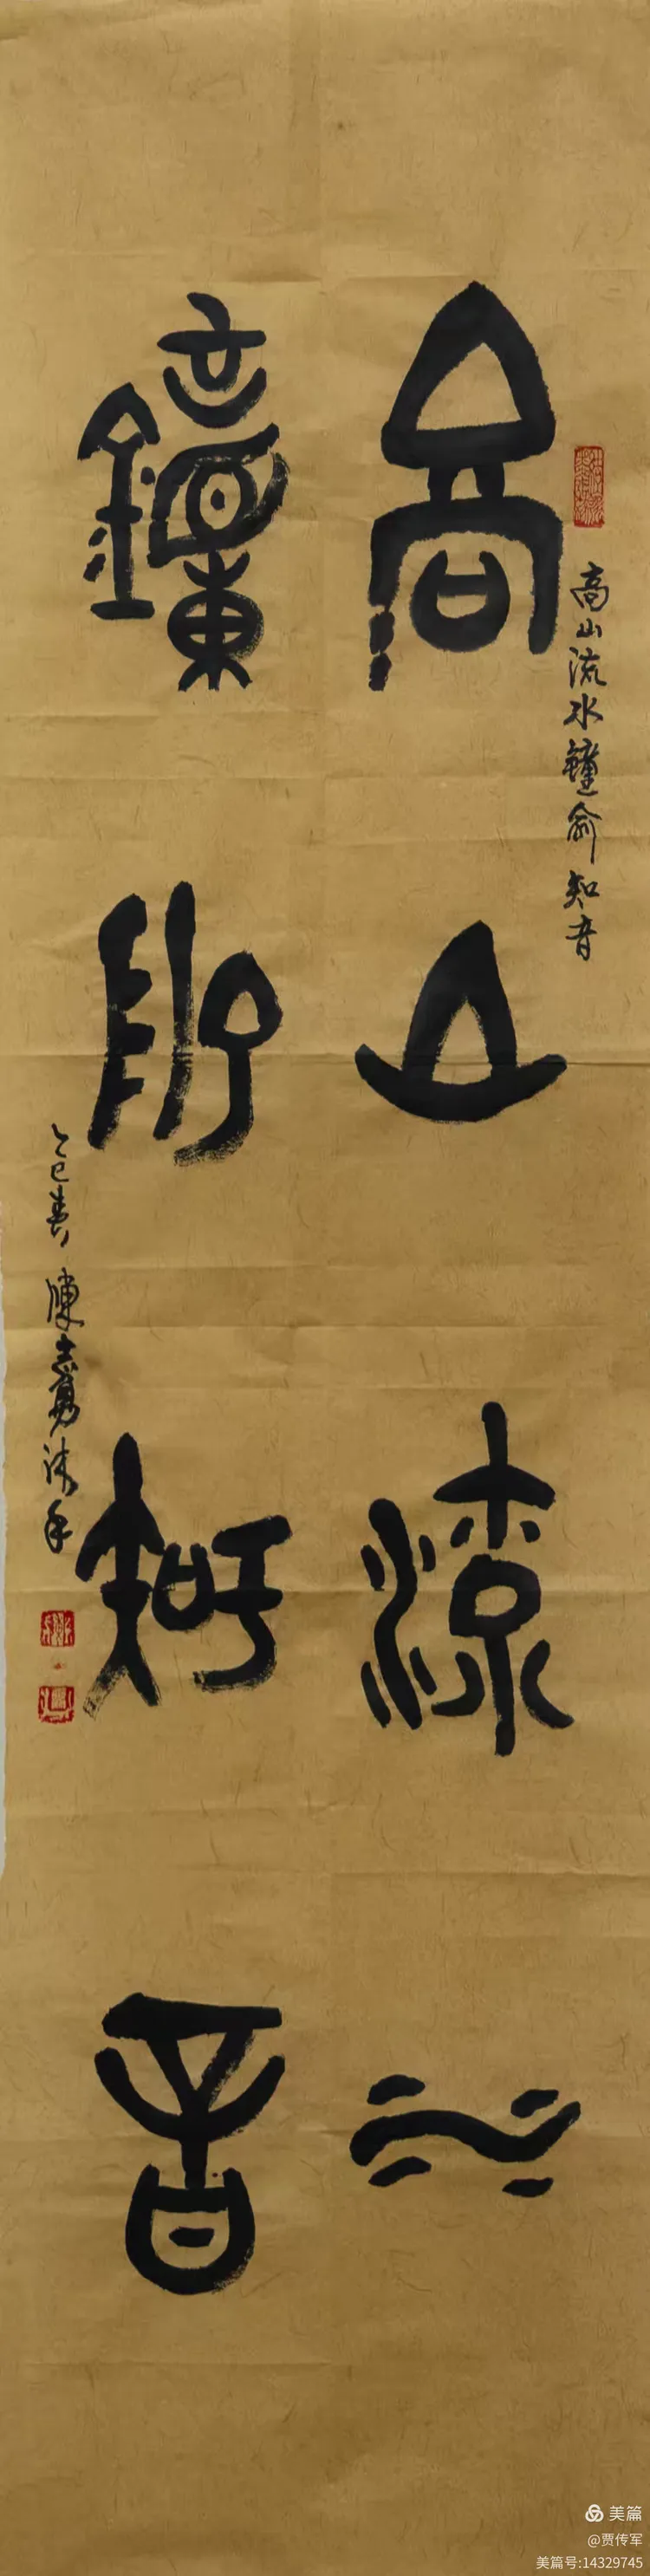 高山流水
鐘俞知音
高山流水鐘俞知音
乙巳春 陳志勇
美篇
@贾传军
美篇号:14329745